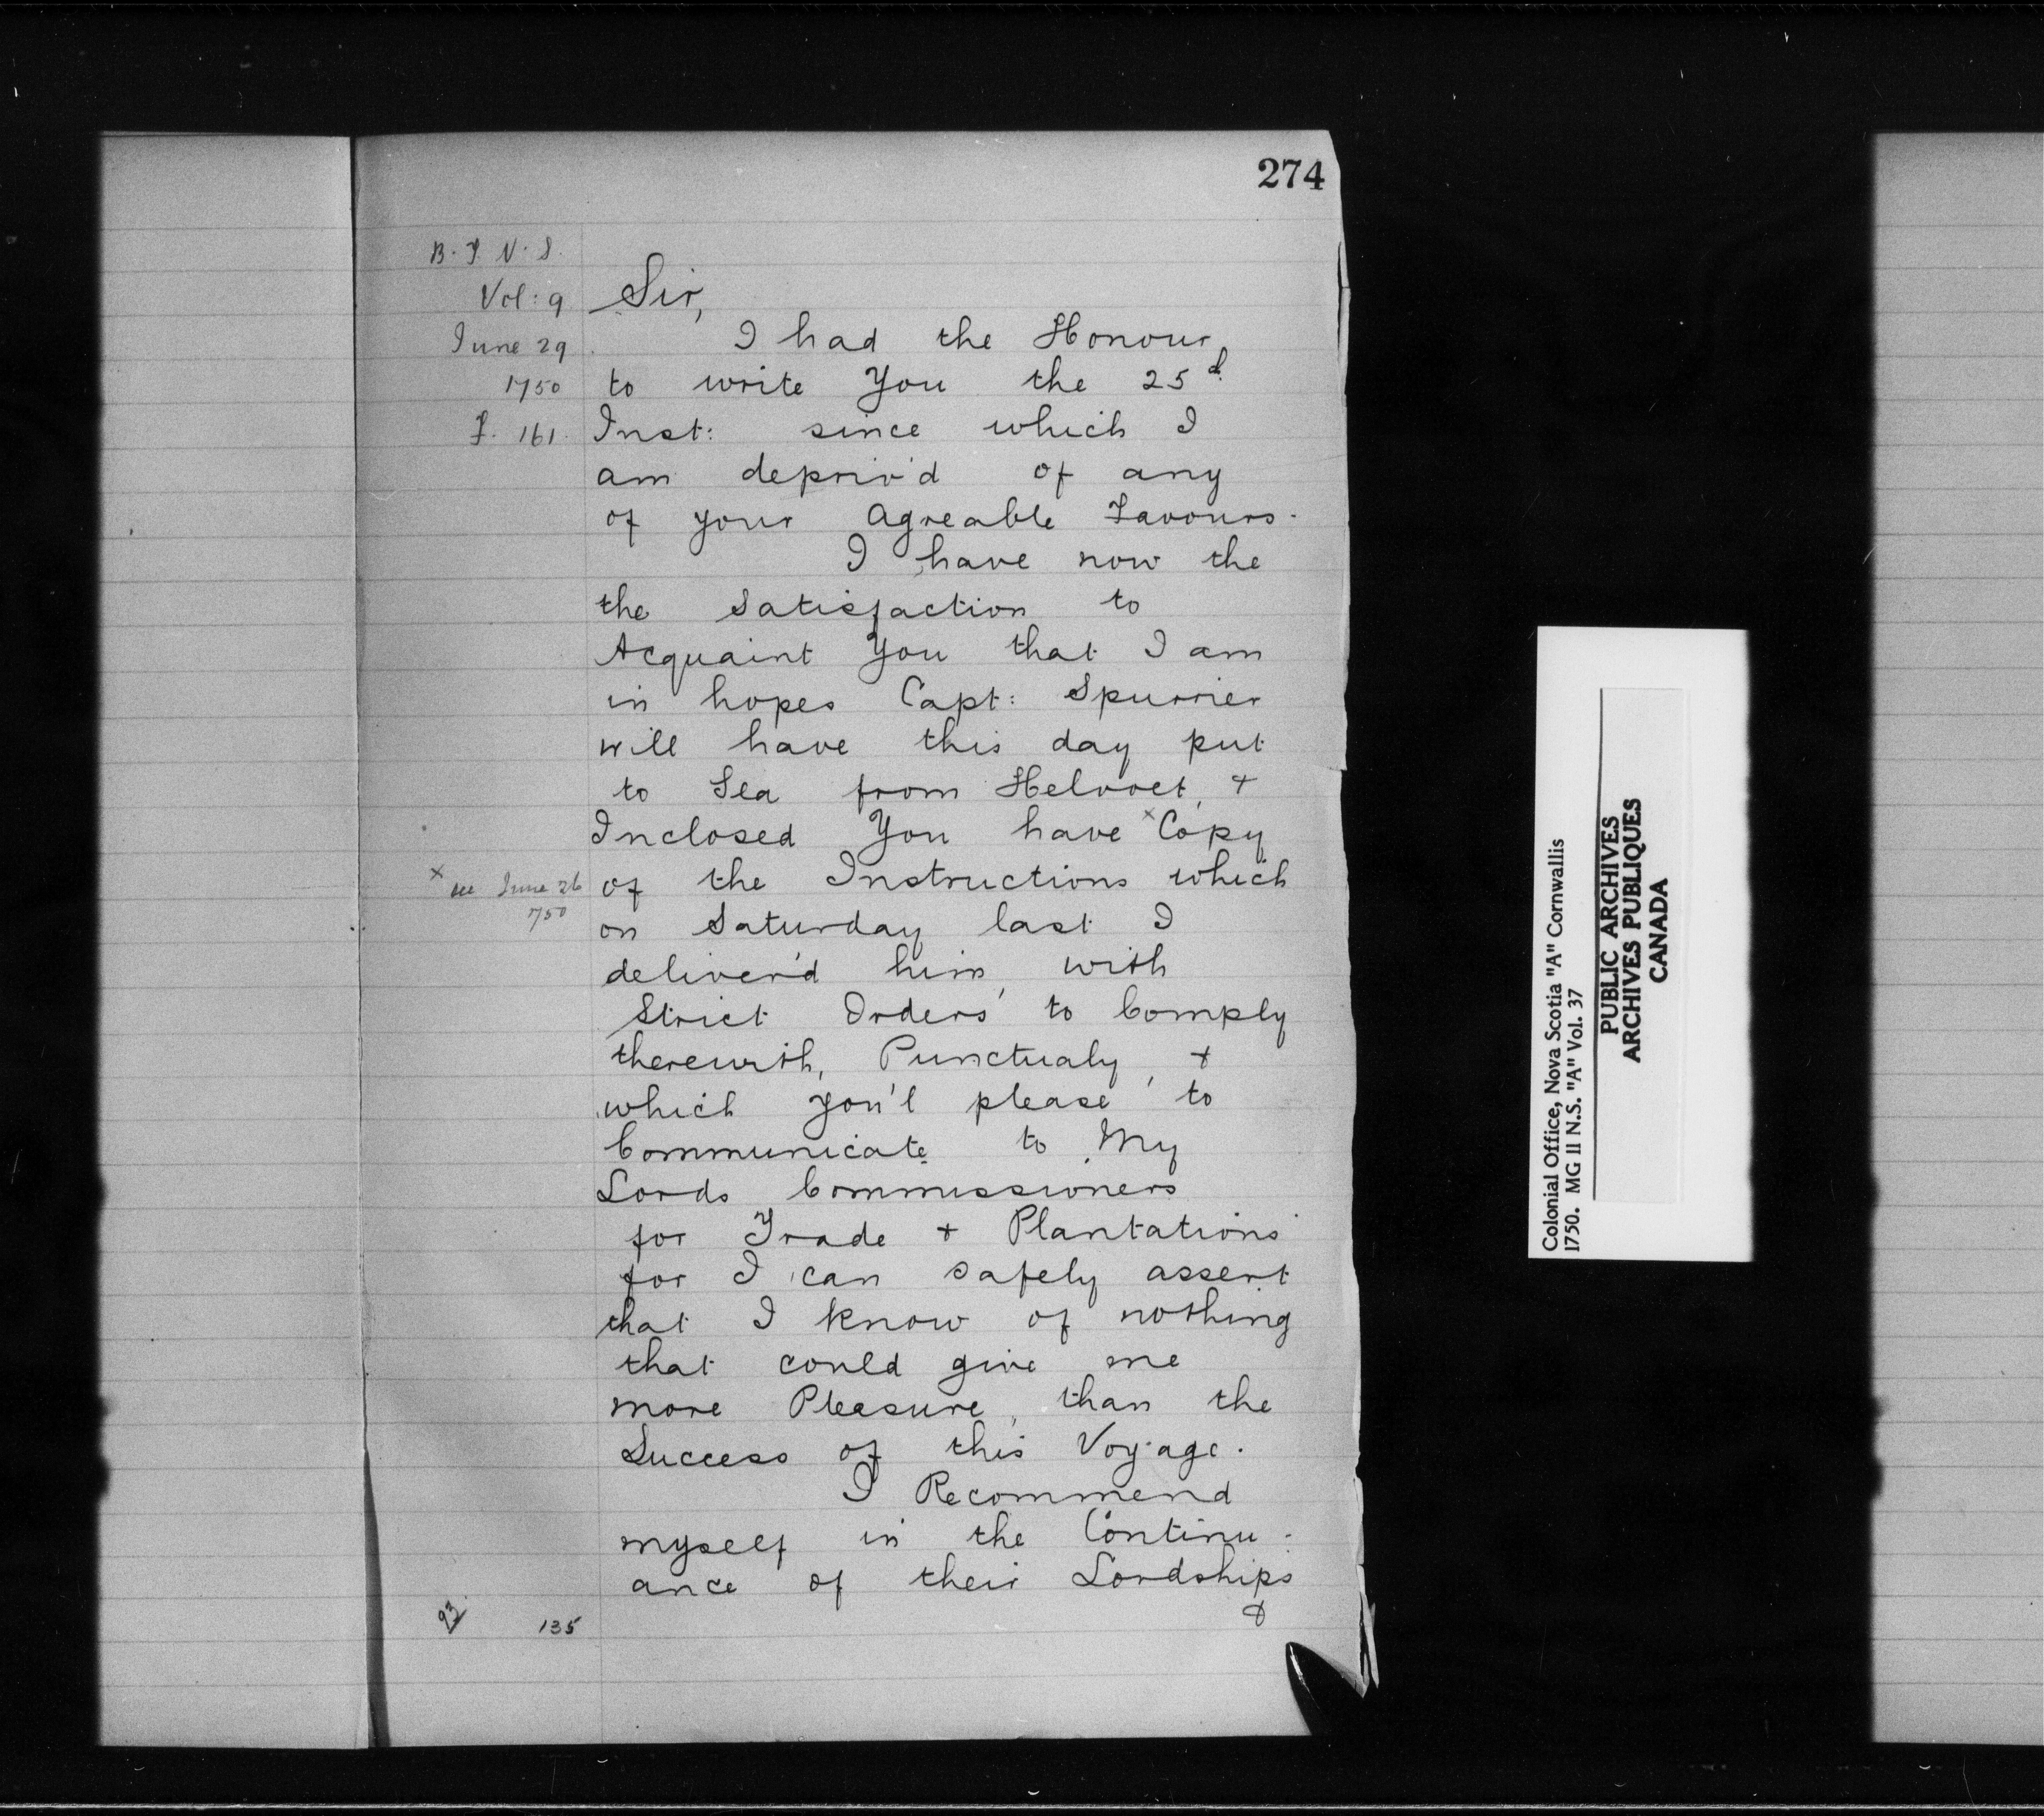 274
B. T. N. S.
Vol: 9
June 29
1750
F. 161.
Sir,
I had the Honour
to write You the 25d.
Inst: since which I
am depriv'd of any
of your Agreable Favours.
I have now the
the Satisfaction to
Acquaint You that I am
in hopes Capt: Spurrier
will have this day put
to Sea from Helvoet, +
Inclosed You have x Copy
x see June 26
1750
of the Instructions which
on Saturday last I
deliver'd him, with
Strict Orders to Comply
therewith, Punctualy, +
which you'l please to
Communicate to My
Lords Commissioners
for Trade + Plantations
for I can safely assert
that I know of nothing
that could give me
more Pleasure, than the
Success of this Voyage.
I Recommend
myself in the Continu-
ance of their Lordships
&
93 135
Colonial Office, Nova Scotia "A" Cornwallis
1750. MG 11 N.S. "A" Vol. 37
PUBLIC ARCHIVES
ARCHIVES PUBLIQUES
CANADA